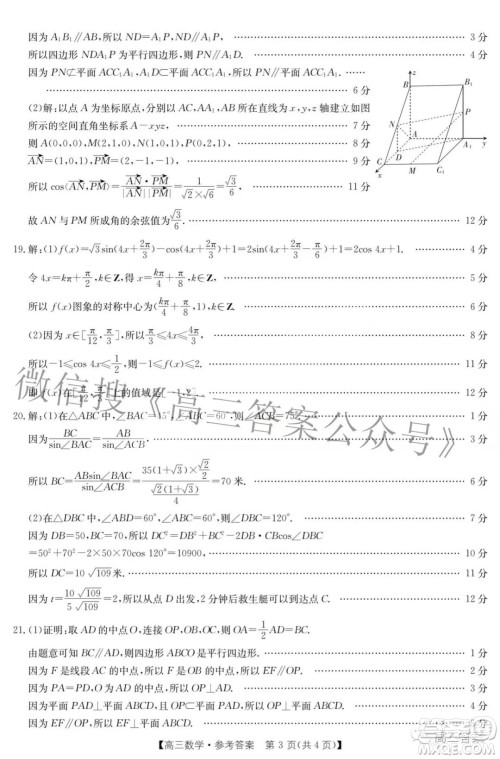 因为 A₁B₁∥AB,所以 ND=A₁P,ND∥A₁P. …… 3 分
所以四边形 NDA₁P 为平行四边形,则 PN∥A₁D. …… 4 分
因为 PN⊄平面 ACC₁A₁,A₁D⊂平面 ACC₁A₁,所以 PN∥平面 ACC₁A₁. ……
…… 6 分
(2)解:以点 A 为坐标原点,分别以 AC,AA₁,AB 所在直线为 x,y,z 轴建立如图
所示的空间直角坐标系 A-xyz, …… 7 分
则 A(0,0,0),M(2,1,0),N(1,0,1),P(0,2,1), …… 8 分
AN=(1,0,1),PM=(2,-1,-1). …… 9 分
所以 cos⟨AN,PM⟩=AN·PM/|AN||PM|=1/(√2×√6)=√3/6, …… 11 分
故 AN 与 PM 所成角的余弦值为√3/6. …… 12 分
z
B
B₁
N
P
A
D
A₁
y
C
M
C₁
x
19.解:(1)f(x)=√3sin(4x+2π/3)-cos(4x+2π/3)+1=2sin(4x+2π/3-π/6)+1=2cos 4x+1. …… 4 分
令 4x=kπ+π/2,k∈Z,得 x=kπ/4+π/8,k∈Z, …… 5 分
所以 f(x)图象的对称中心为(kπ/4+π/8,1),k∈Z. …… 6 分
(2)因为 x∈[π/12,π/3],所以π/3≤4x≤4π/3, …… 8 分
所以-1≤cos 4x≤1/2,则-1≤f(x)≤2. …… 11 分
即 f(x)在[π/12,π/3]上的值域是[-1,2]. …… 12 分
20.解:(1)在△ABC 中,∠BAC=45°,∠ABC=60°,则∠ACB=75°. …… 1 分
因为 BC/sin∠BAC=AB/sin∠ACB, …… 3 分
所以 BC=ABsin∠BAC/sin∠ACB=35(1+√3)×√2/2/(√2(1+√3)/4)=70 米. …… 6 分
(2)在△DBC 中,∠ABD=60°,∠ABC=60°,则∠DBC=120°. …… 7 分
因为 DB=50,BC=70,所以 DC²=DB²+BC²-2DB·CBcos∠DBC
=50²+70²-2×50×70cos 120°=10900, …… 10 分
所以 DC=10√109米. …… 11 分
因为 t=10√109/5√109=2,所以从点 D 出发,2 分钟后救生艇可以到达 C 处. …… 12 分
21.(1)证明:取 AD 的中点 O,连接 OP,OB,OC,则 OA=1/2AD=BC.
由题意可知 BC∥AD,则四边形 ABCO 是平行四边形. …… 1 分
因为 F 是线段 AC 的中点,所以 F 是 OB 的中点,则 EF∥OP. …… 2 分
因为 PA=PD,O 为 AD 的中点,所以 OP⊥AD. …… 3 分
因为平面 PAD⊥平面 ABCD,且 OP⊂平面 PAD,所以 OP⊥平面 ABCD. …… 4 分
因为 EF∥OP,所以 EF⊥平面 ABCD. …… 5 分
【高三数学·参考答案 第 3 页(共 4 页)】
微信搜《高三答案公众号》